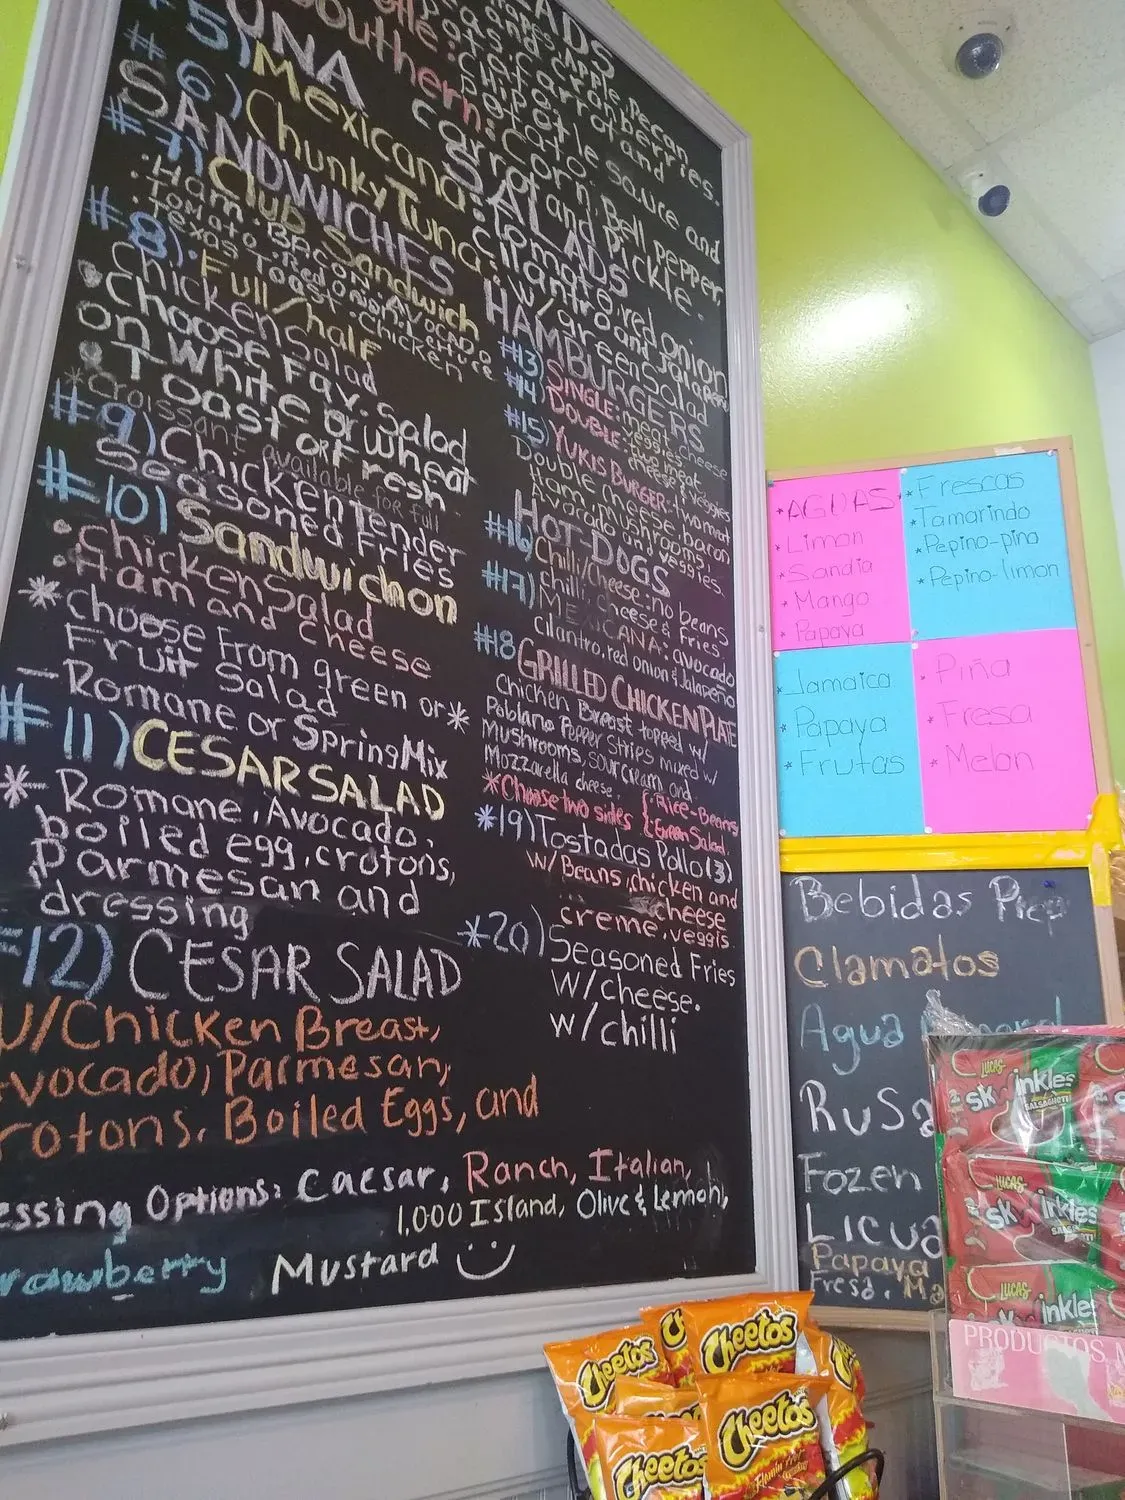 ADS
Apple, Pecan
and cranberries.
carrot and
chipotle sauce and
Southern:
corn, Bell pepper,
carrot and Pickle.
#5)
TUNA SALADS
Mexicana: tomate, red onion
cilantro and Jalapeño
#6) Chunky Tuna: w/green Salad
SANDWICHES
#7) Club Sandwich
· Ham · BACON · AVOCADO
· Tomato · Red onion · Lettuce
· Texas Toast · Chicken
#8) · Full/half
Chicken Salad
· Choose Fav. Salad
on White or Wheat
· Toast or Fresh
*Croissant available for full
#9) Chicken Tender
Seasoned Fries
#10) Sandwichon
· Chicken Salad
· Ham and Cheese
* Choose From green or *
Fruit Salad
- Romane or Spring Mix
#11) CESAR SALAD
* - Romane, Avocado,
boiled egg, crotons,
Parmesan and
dressing
#12) CESAR SALAD
w/Chicken Breast,
Avocado, Parmesan,
rotons, Boiled Eggs, and
essing Options: Caesar, Ranch, Italian,
1,000 Island, Olive & Lemon,
rawberry Mustard
HAMBURGERS
#13) SINGLE: meat, cheese
veggies
#14) DOUBLE: two meat
cheese & veggies
#15) YUKIS BURGER: two meat
Double cheese, bacon
Ham, mushrooms,
Avocado and veggies.
HOT-DOGS
#16) Chilli/Cheese: no beans
chilli, cheese & Fries
#17) MEXICANA: avocado
cilantro, red onion & Jalapeño
#18 GRILLED CHICKEN PLATE
Chicken Breast topped w/
Poblano Pepper Strips mixed w/
Mushrooms, sour cream and
Mozzarella cheese.
*Choose two sides { · Rice - Beans
· Green Salad.
*19) Tostadas Pollo (3)
w/ Beans, chicken and
cheese
creme, veggis
*20) Seasoned Fries
w/cheese.
w/chilli
* AGUAS
* Limon
* Sandia
* Mango
* Papaya
* Frescas
* Tamarindo
* Pepino-pina
* Pepino-limon
* Jamaica
* Papaya
* Frutas
* Piña
* Fresa
* Melon
Bebidas Prep
Clamatos
Agua
RuSa
Fozen
Licua
Papaya
Fresa. Ma
LUCAS
skwinkles
SALSAGHETI
LUCAS
skwinkles
SALSAGHETI
LUCAS
inkles
PRODUCTOS M
Cheetos
Cheetos
Cheetos
Flamin' Hot
Cheetos